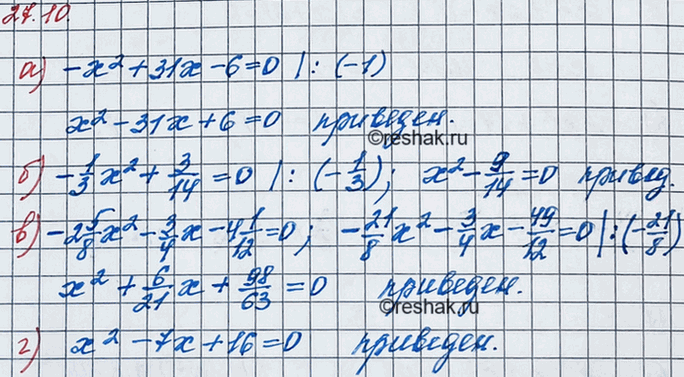 27.10.
а) -x² + 31x - 6 = 0 | : (-1)
x² - 31x + 6 = 0 приведен.
reshak.ru
б) -1/3 x² + 3/14 = 0 | : (-1/3); x² - 9/14 = 0 привед.
в) -2 5/8 x² - 3/4 x - 4 1/12 = 0; -21/8 x² - 3/4 x - 49/12 = 0 | : (-21/8)
x² + 6/21 x + 98/63 = 0 приведен.
©reshak.ru
г) x² - 7x + 16 = 0 приведен.